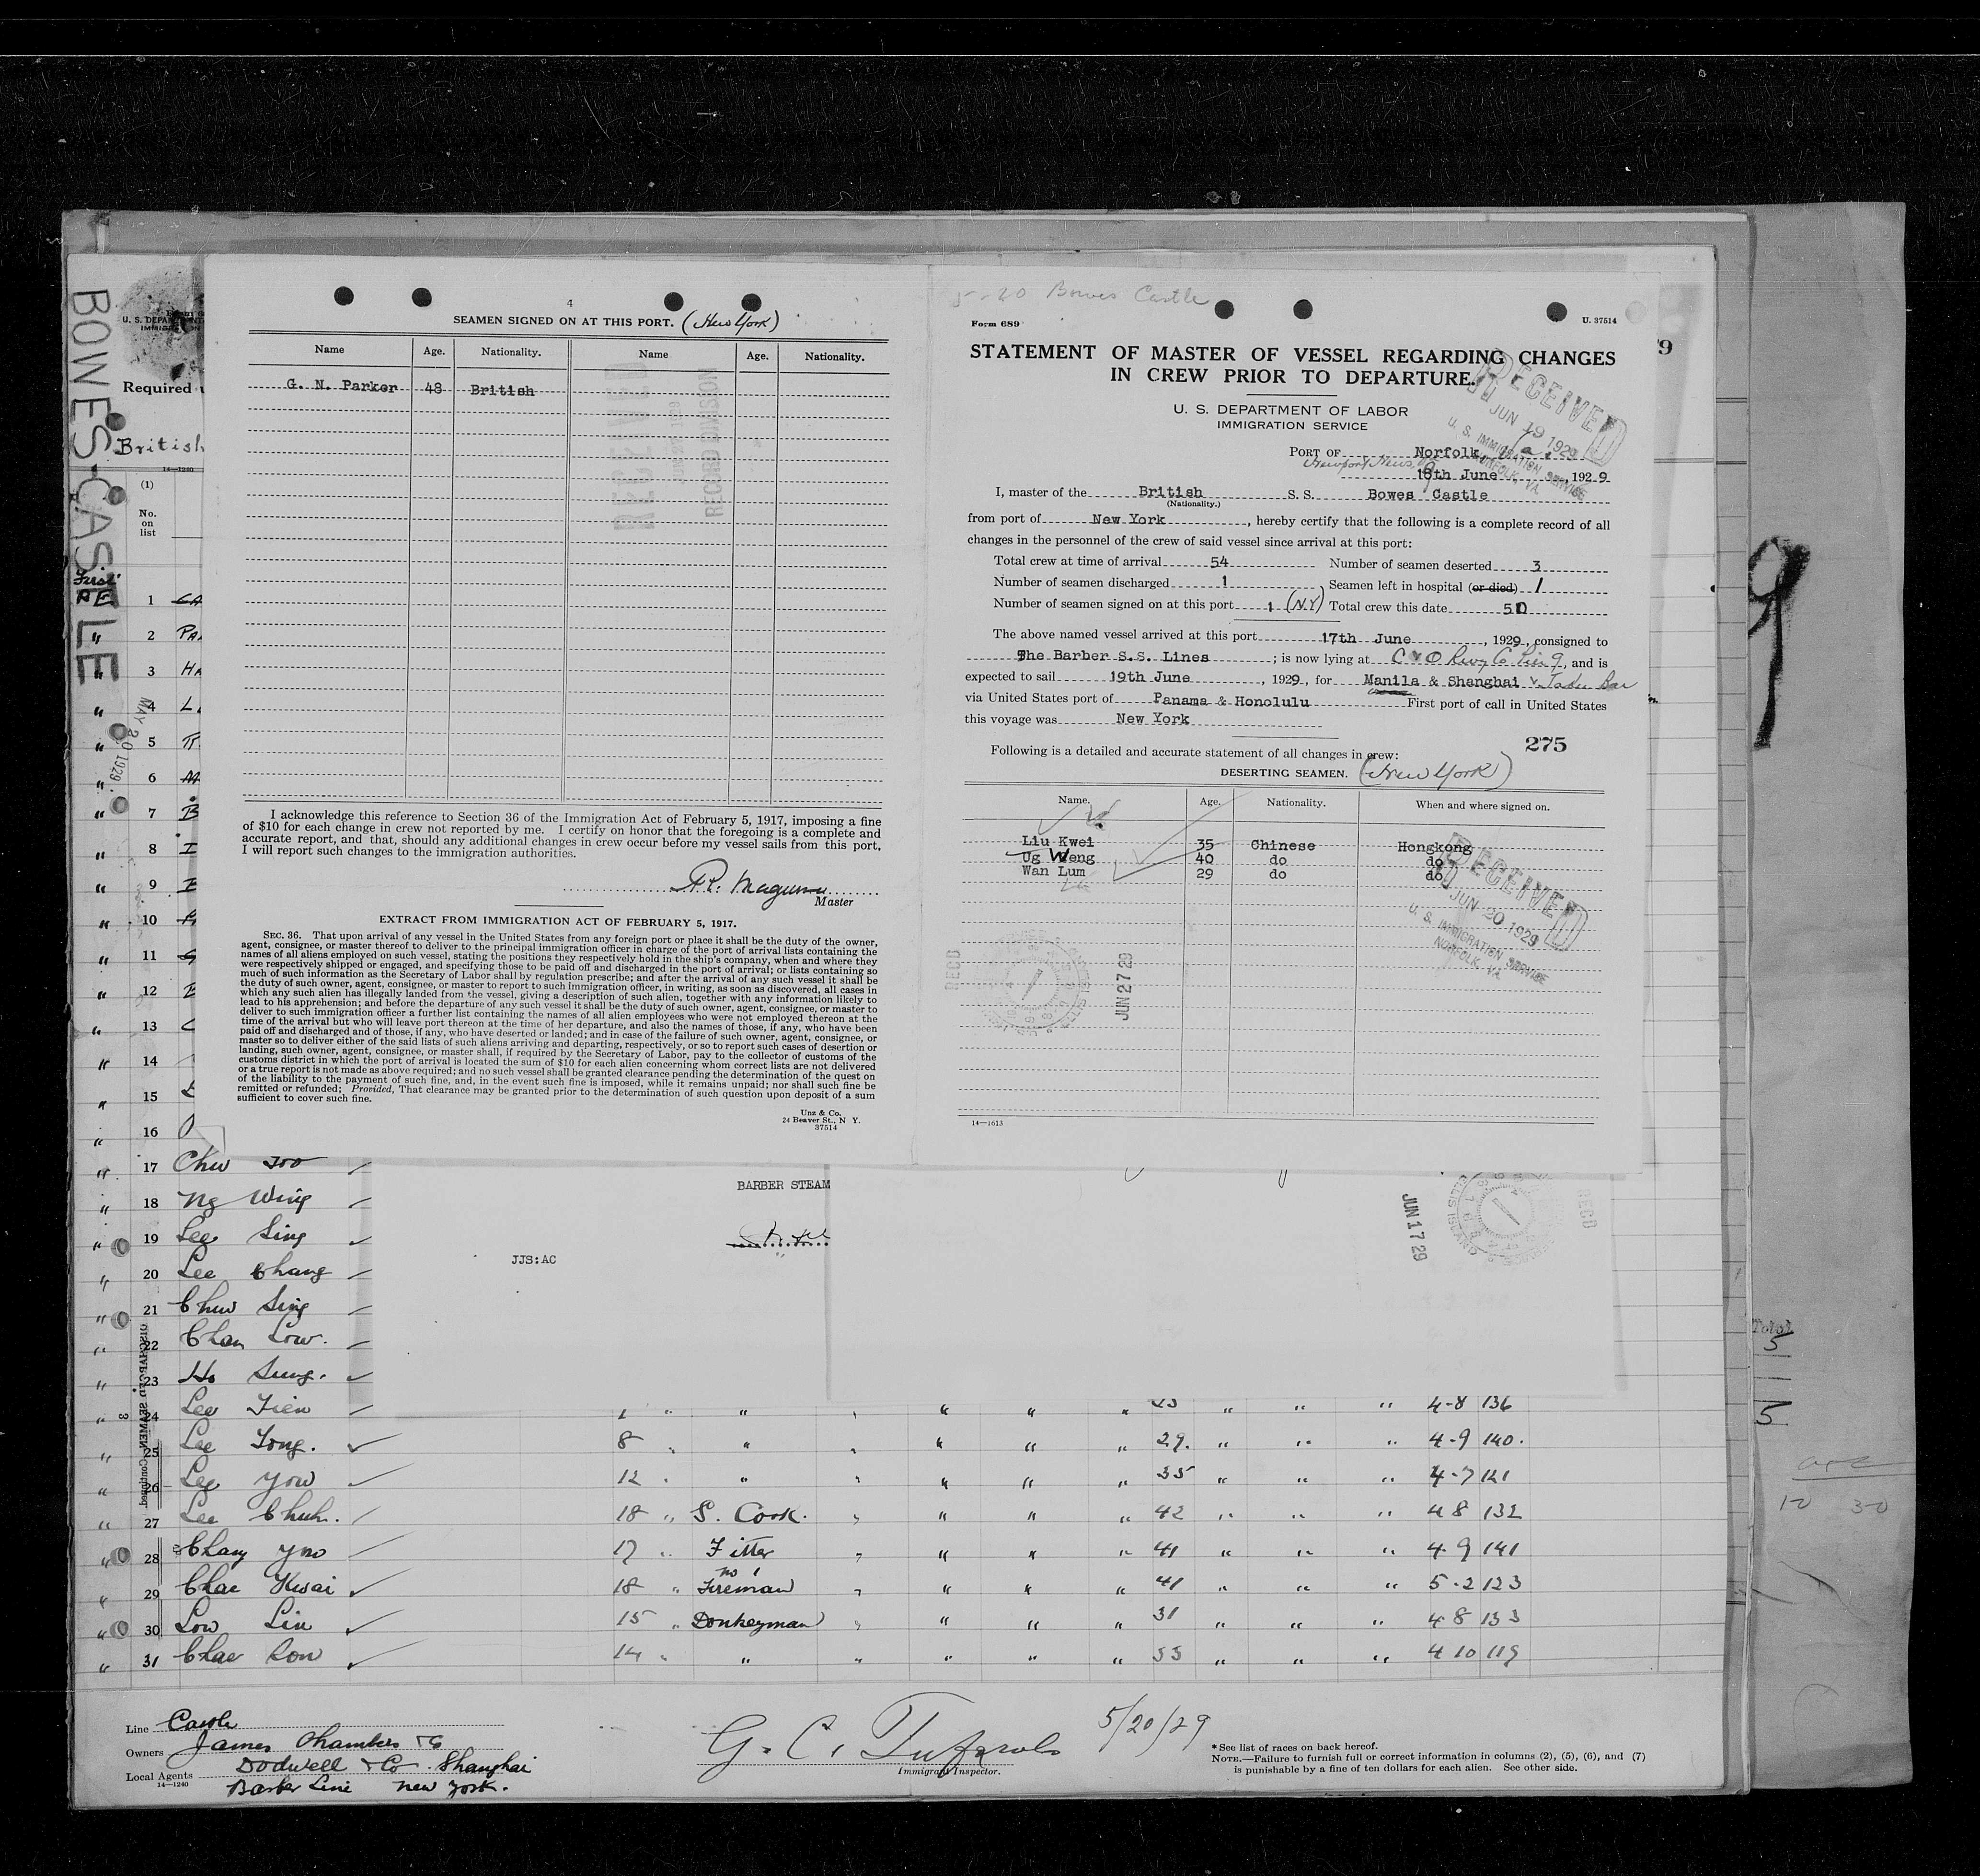 4
SEAMEN SIGNED ON AT THIS PORT. (New York)
Name Age. Nationality. Name Age. Nationality.
G. N. Parker 48 British
RECEIVED
RECORD DIVISION
I acknowledge this reference to Section 36 of the Immigration Act of February 5, 1917, imposing a fine
of $10 for each change in crew not reported by me. I certify on honor that the foregoing is a complete and
accurate report, and that, should any additional changes in crew occur before my vessel sails from this port,
I will report such changes to the immigration authorities.
Master
EXTRACT FROM IMMIGRATION ACT OF FEBRUARY 5, 1917.
SEC. 36. That upon arrival of any vessel in the United States from any foreign port or place it shall be the duty of the owner,
agent, consignee, or master thereof to deliver to the principal immigration officer in charge of the port of arrival lists containing the
names of all aliens employed on such vessel, stating the positions they respectively hold in the ship's company, when and where they
were respectively shipped or engaged, and specifying those to be paid off and discharged in the port of arrival; or lists containing so
much of such information as the Secretary of Labor shall by regulation prescribe; and after the arrival of any such vessel it shall be
the duty of such owner, agent, consignee, or master to report to such immigration officer, in writing, as soon as discovered, all cases in
which any such alien has illegally landed from the vessel, giving a description of such alien, together with any information likely to
lead to his apprehension; and before the departure of any such vessel it shall be the duty of such owner, agent, consignee, or master to
deliver to such immigration officer a further list containing the names of all alien employees who were not employed thereon at the
time of the arrival but who will leave port thereon at the time of her departure, and also the names of those, if any, who have been
paid off and discharged and of those, if any, who have deserted or landed; and in case of the failure of such owner, agent, consignee, or
master so to deliver either of the said lists of such aliens arriving and departing, respectively, or so to report such cases of desertion or
landing, such owner, agent, consignee, or master shall, if required by the Secretary of Labor, pay to the collector of customs of the
customs district in which the port of arrival is located the sum of $10 for each alien concerning whom correct lists are not delivered
or a true report is not made as above required; and no such vessel shall be granted clearance pending the determination of the quest on
of the liability to the payment of such fine, and, in the event such fine is imposed, while it remains unpaid; nor shall such fine be
remitted or refunded; Provided, That clearance may be granted prior to the determination of such question upon deposit of a sum
sufficient to cover such fine.
Unz & Co.
24 Beaver St., N Y.
37514
5-20 Bowes Castle
Form 689
U. 37514
STATEMENT OF MASTER OF VESSEL REGARDING CHANGES
IN CREW PRIOR TO DEPARTURE.
U. S. DEPARTMENT OF LABOR
IMMIGRATION SERVICE
RECEIVED
JUN 19 1929
U. S. IMMIGRATION SERVICE
NORFOLK, VA.
PORT OF Norfolk, Va.
Newport News
18th June, 1929
I, master of the British S. S. Bowes Castle
(Nationality.)
from port of New York, hereby certify that the following is a complete record of all
changes in the personnel of the crew of said vessel since arrival at this port:
Total crew at time of arrival 54 Number of seamen deserted 3
Number of seamen discharged 1 Seamen left in hospital (or died) 1
Number of seamen signed on at this port 1 (N.Y) Total crew this date 50
The above named vessel arrived at this port 17th June, 1929, consigned to
The Barber S.S. Lines; is now lying at C & O Rwy Co Pier 9, and is
expected to sail 19th June, 1929, for Manila & Shanghai & Taku Bar
via United States port of Panama & Honolulu First port of call in United States
this voyage was New York
275
Following is a detailed and accurate statement of all changes in crew:
DESERTING SEAMEN. (New York)
Name. Age. Nationality. When and where signed on.
Liu Kwei 35 Chinese Hongkong
Ug Weng 40 do do
Wan Lum 29 do do
RECEIVED
JUN 20 1929
U. S. IMMIGRATION SERVICE
NORFOLK, VA.
RECD
JUN 27 29
14—1613
BOWES-CASTLE
U. S. DEPA
Required
British
14—1240
(1)
No.
on
list
MAY 20 1929
1
2
3
4
5
6
7
8
9
10
11
12
13
14
15
16
17 Chu Too
18 Ng Wing
19 Lee Sing
20 Lee Chang
21 Chew Sing
22 Chan Low.
23 Ho Sung.
24 Lee Tien " " " " " " " " 4-8 136
25 Lee Tong. 8 " " " " " " 29. " " " 4-9 140.
26 Lee Yow 12 " " " " " " 35 " " " 4-7 121
27 Lee Chuh. 18 " S. Cook. " " " " 42 " " " 4 8 132
28 Chang Yno 17 " Fitter " " " " 41 " " " 4-9 141
29 Chae Kwai 18 " no 1 Fireman " " " " 41 " " " 5-2 123
30 Low Lin 15 " Donkeyman " " " " 31 " " " 4 8 133
31 Chae Son 14 " " " " " " 33 " " " 4 10 119
DISCHARGED SEAMEN—Continued.
3
BARBER STEAM
JJS:AC
JUN 17 29
RECD
Total
5
5
10 30
Line Castle
Owners James Chambers & Co
Local Agents Dodwell & Co. Shanghai
14—1240
Barber Line New York.
5/20/29
Immigrant Inspector.
* See list of races on back hereof.
NOTE.—Failure to furnish full or correct information in columns (2), (5), (6), and (7)
is punishable by a fine of ten dollars for each alien. See other side.